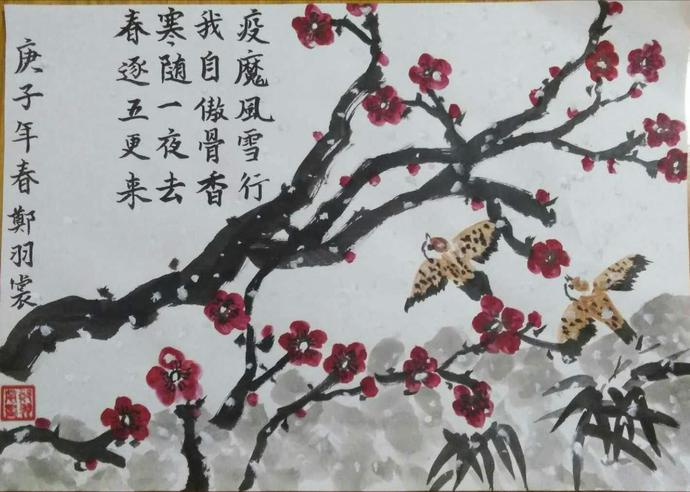 疫魔風雪行
我自傲骨香
寒随一夜去
春逐五更来
庚子年春鄭羽裳